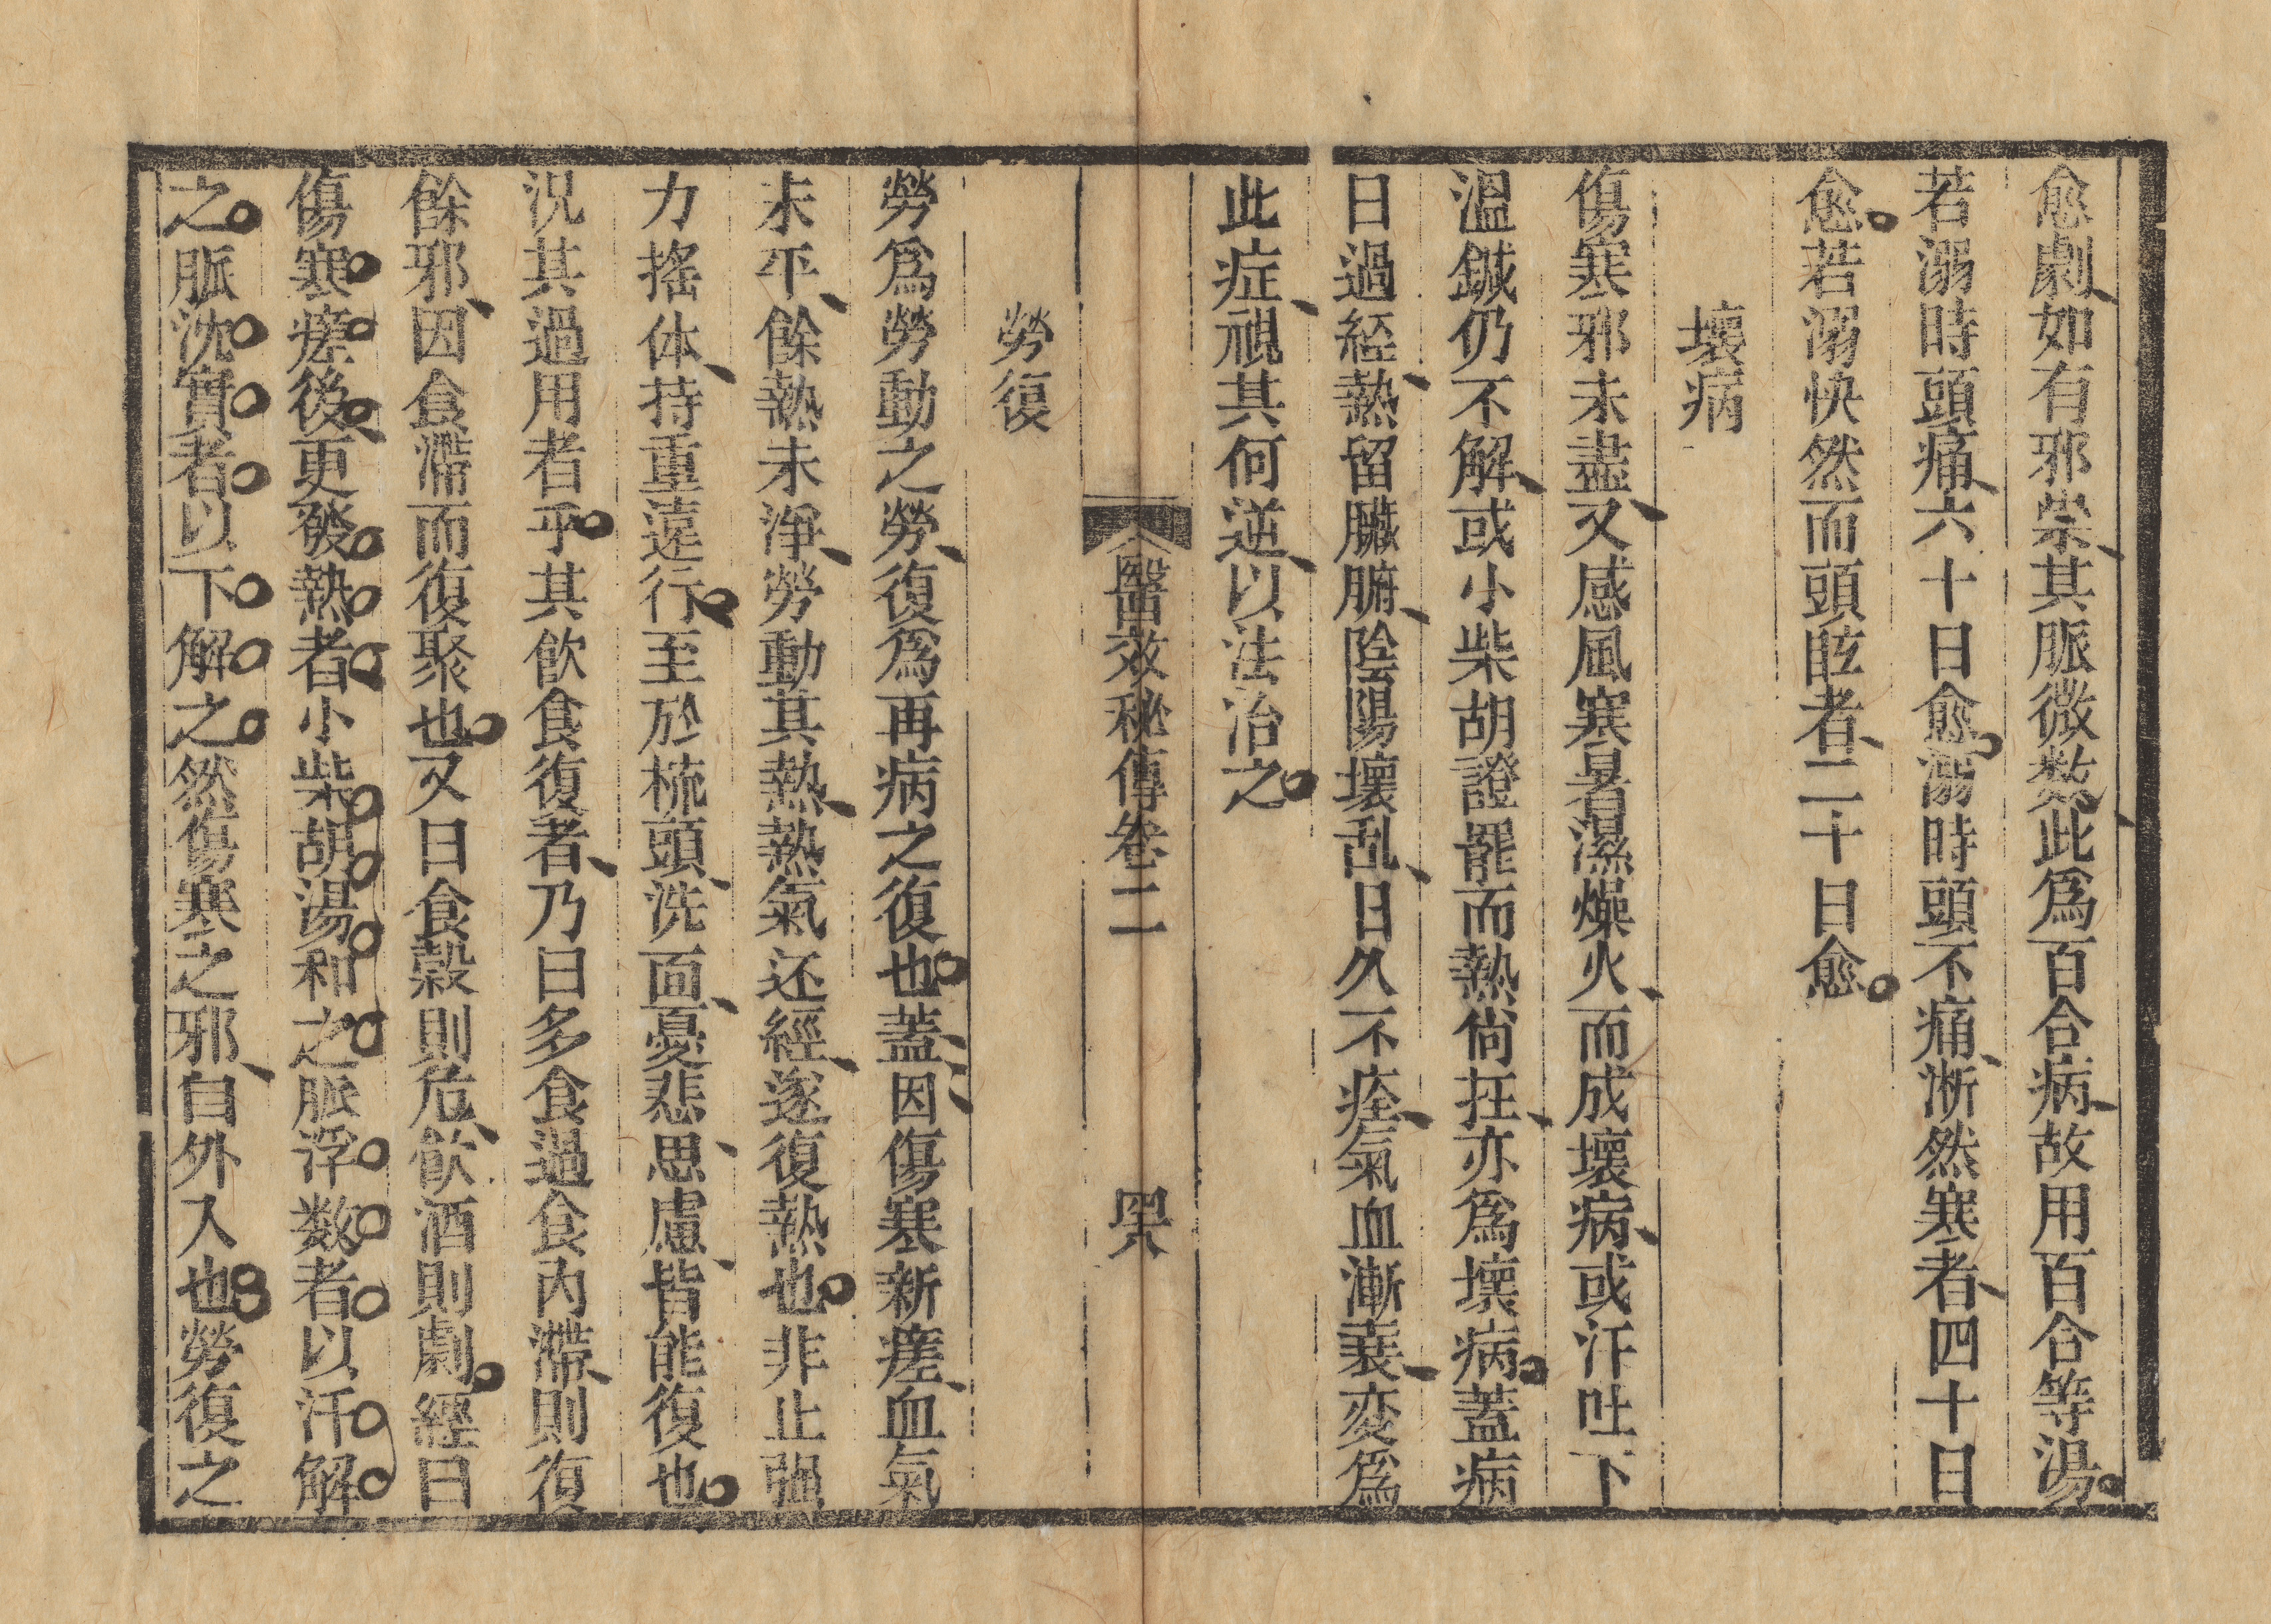 愈劇如有邪祟其脈微数此爲百合病故用百合等湯
若溺時頭痛六十日愈溺時頭不痛淅然寒者四十日
愈若溺快然而頭眩者二十日愈
壞病
傷寒邪未盡又感風寒暑濕燥火而成壞病或汗吐下
溫鍼仍不解或小柴胡證罷而熱尙在亦爲壞病蓋病
日過経熱留臟腑陰陽壞乱日久不痊氣血漸衰変爲
此症視其何逆以法治之
醫效秘傳卷二 四六
勞復
勞爲勞動之勞復爲再病之復也蓋因傷寒新瘥血氣
未平餘熱未淨勞動其熱熱氣还經遂復熱也非止强
力搖体持重遠行至於梳頭洗面憂悲思慮皆能復也
况其過用者乎其飮食復者乃曰多食過食內滯則復
餘邪因食滯而復聚也又曰食穀則危飮酒則劇經曰
傷寒瘥後更發熱者小柴胡湯和之脈浮数者以汗解
之脈沈實者以下解之然傷寒之邪自外入也勞復之